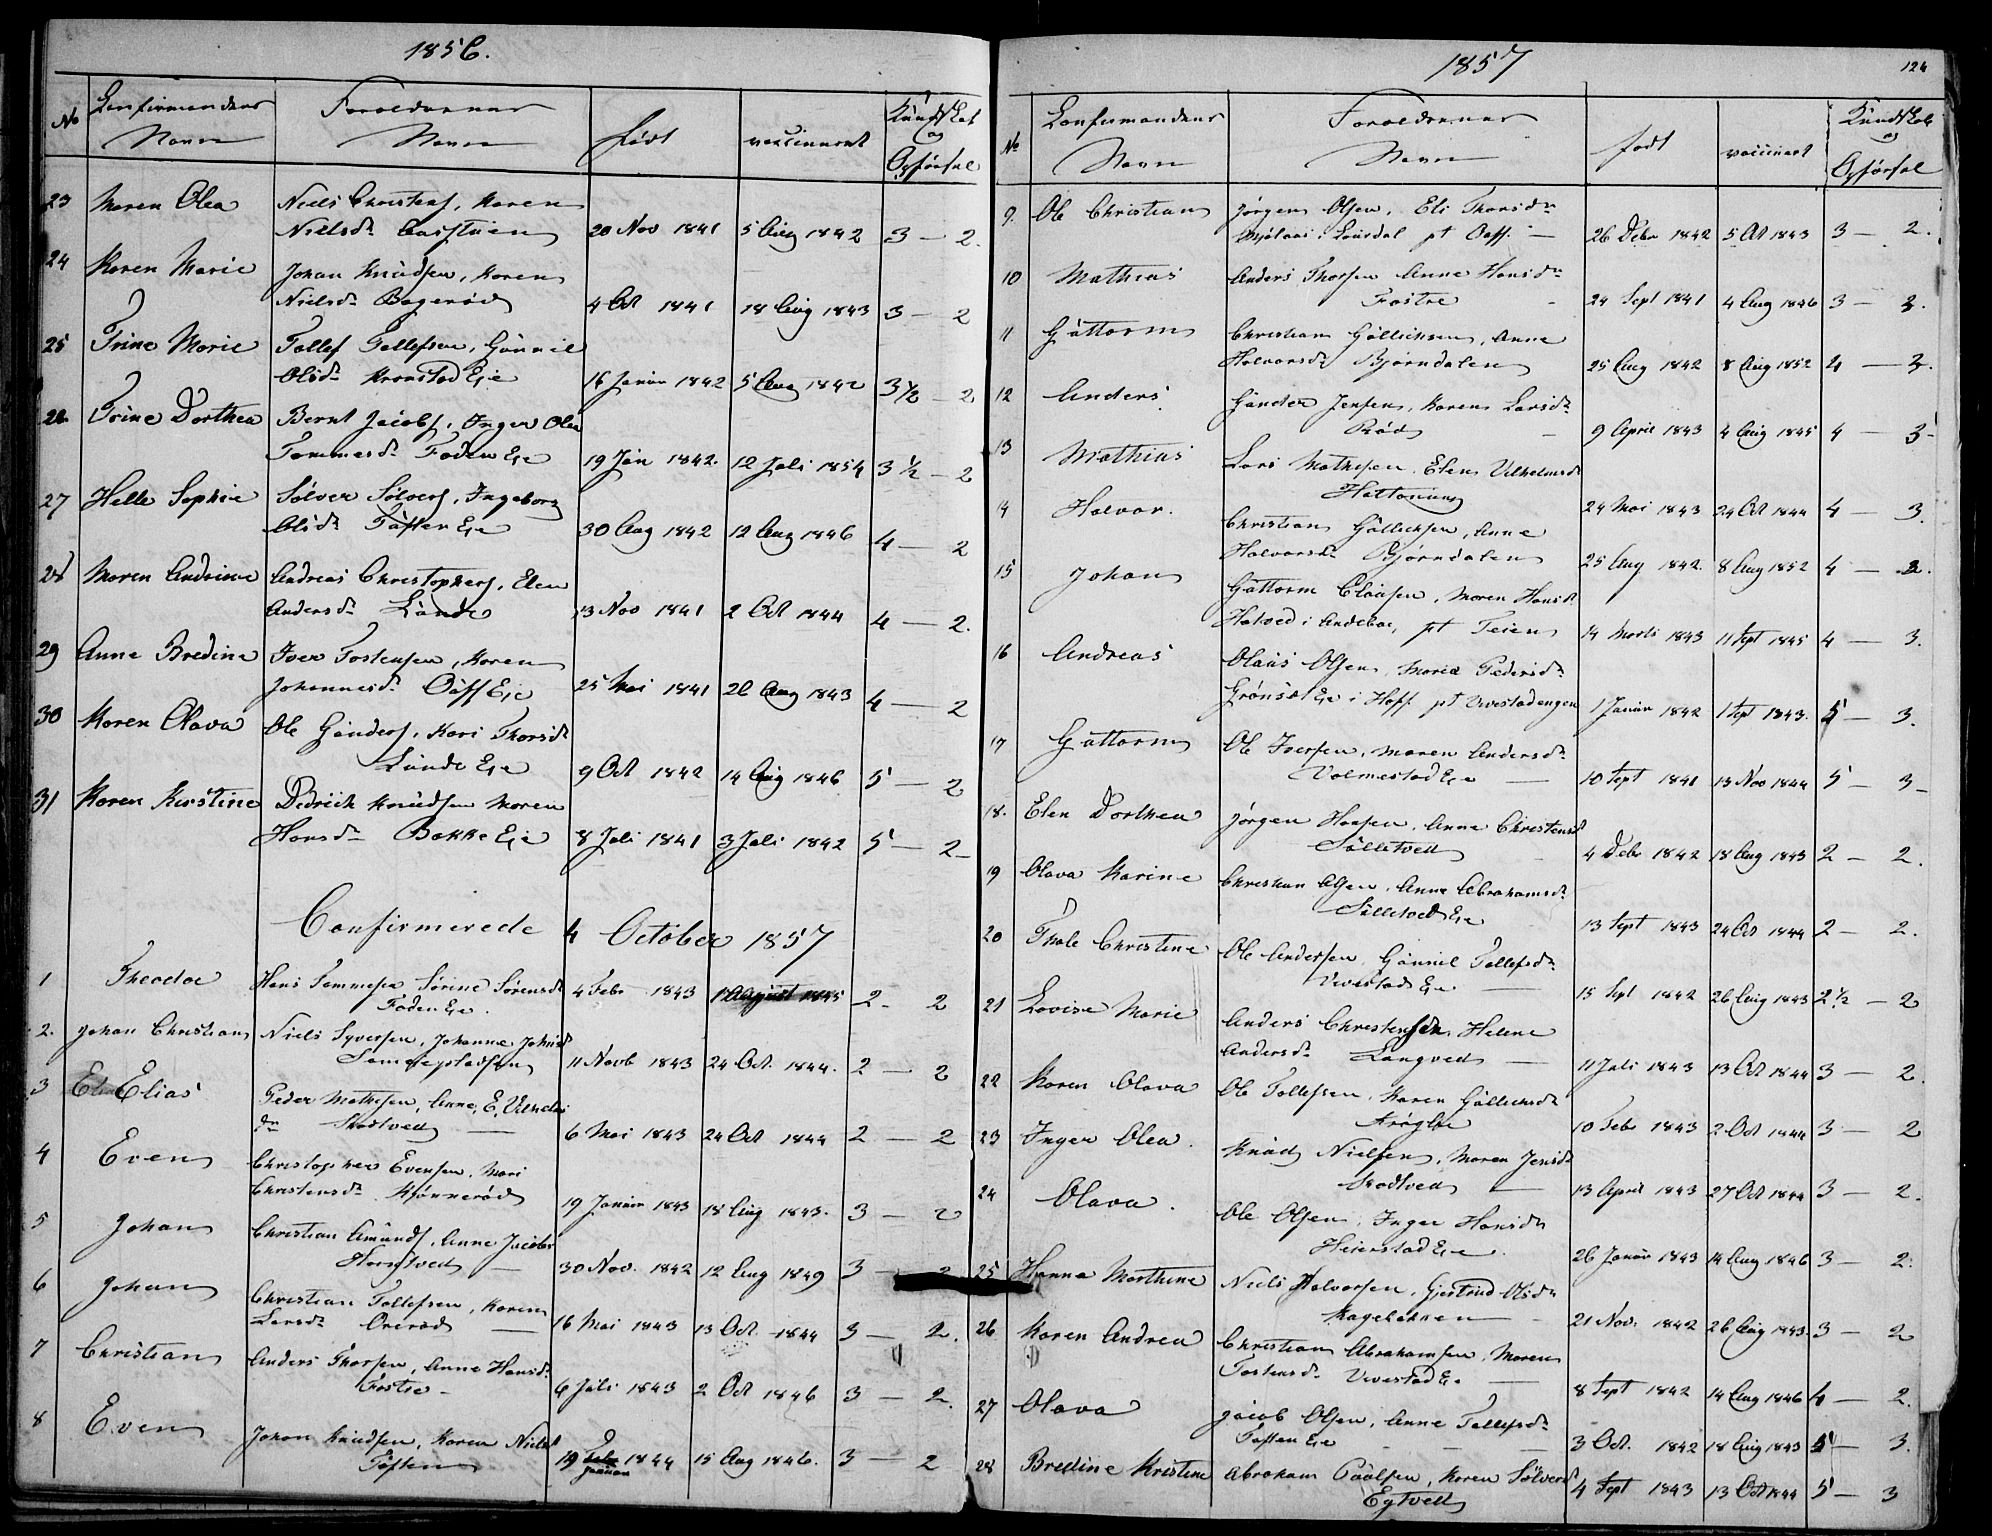 1856.
No Confirmandens Forældrenes født vaccineret Kundskab
Navn Navn og
Opførsel
23 Maren Olea Niels Christens, Karen
Nielsdr 20 Nov 1841 5 Aug 1842 3 — 2.
24 Karen Marie Johan Knudsen, Karen
Nielsdr Bogerød 4 Oct 1841 18 Aug 1843 3 — 2
25 Trine Marie Tollef Tollefsen, Gunnil
Olsdr Kronstad Eje 16 Januar 1842 5 Aug 1842 3½ — 2
26 Trine Dorthea Bernt Jacobs, Inger Olea
Tommesdr Foden Eje 19 Jan 1842. 12 Juli 1854 3½ — 2
27 Helle Sophie Sølver Sølvers, Ingeborg
Olsdr Toften Eje 30 Aug 1842 12 Aug 1846 4 — 2
28 Maren Andrine Andreas Christophers, Elen
Andersdr Lunde 13 Nov 1841 2 Oct 1844 4 — 2.
29 Anne Bredine Iver Tostensen, Karen
Johannesdr Eje 25 Mai 1841 26 Aug 1843 4 — 2
30 Karen Olava Ole Gunders, Kari Thorsdr
Lunde Eje 9 Oct 1842 14 Aug 1846 5 — 2
31 Karen Kirstine Didrich Knudsen Maren
Hansdr Bakke Eje 8 Juli 1841 3 Juli 1842 5 — 2
Confirmerede 4 October 1857
1 Theodor Hans Tommesen Sørine Sørensdr
Foden Eje. 4 Febr 1843 August 1845 2 - 2
2. Johan Christian Niels Syversen, Johanne Johnsd
11 Novb 1843 24 Oct. 1844. 2 — 2
3 Elias Peder Mathisen, Anne E. Vilhelms
dr Skodtved — 6 Mai 1843 24 Oct 1844 2 — 2
4 Even Christopher Evensen, Mari
Christensdr 19 Januar 1843 18 Aug 1843. 3 — 2
5 Johan Christian Amunds, Anne Jacobs
— 30 Nov. 1842 12 Aug 1849 3 — 2
6 Johan Christian Tollefsen, Karen
Larsdr Orerød — 16 Mai 1843 13 Oct. 1844 3 — 2.
7 Christian Anders Thorsen, Anne Hansdr
Fostre - 6 Juli 1843 2 Oct 1846 3 — 2.
8 Even Johan Knudsen, Karen Nielsd
Toften 19 Januar 1844 15 Aug 1846. 3 — 2
1857
124
No Confirmandens Forældrenes født vaccineret Kundskab
Navn Navn og
Opførsel
9. Ole Christian Jørgen Olsen, Eli Thorsdr
i Lardal pt 26 Debr 1842 5 Oct 1843 3 — 2.
10 Mathias Anders Thorsen Anne Hansdr
Fostre 24 Sept 1841 4 Aug 1846 3 — 3.
11 Guttorm Christian Gullichsen, Anne
Halvorsdr Bjørndalen 25 Aug 1842 8 Aug 1852 4 — 3.
12 Anders Gunder Jensen, Karen Larsdr
Rød 9 April 1843 4 Aug 1845 4 — 3
13 Mathias Lars Mathisen, Elen Vilhelmsd
24 Mai 1843 24 Oct 1844 4 — 3.
14 Halvor. Christian Gullichsen, Anne
Halvorsdr Bjørndalen 25 Aug 1842. 8 Aug 1852 4 — 3.
15 Johan Guttorm Claüsen, Maren Hansd
Hotved i Andebue, pt Teien 14 Marts 1843 11 Sept 1845 4 — 3.
16 Andreas Olaüs Olsen, Marie Pedersdr
Grønsæt Eje i Hoff pt Vivestadengen 1 Januar 1842 1 Sept 1843. 5 — 3.
17 Guttorm Ole Iversen, Maren Andersdr
Valmestad Eje — 10 Sept 1841 13 Nov 1844 5 — 3
18. Elen Dorthea Jørgen Hansen, Anne Christensd
Sulletved 4 Debr 1842 18 Aug 1843 2 — 2.
19 Olava Karine Christian Olsen, Anne Abrahamsdr
Sulletved Eje 13 Sept 1843 24 Oct 1844 2 — 2.
20 Thale Christine Ole Andersen, Gunnil Tollefsdr
Vivestad Eje — 15 Sept 1842 26 Aug 1843 2½ — 2
21 Lovise Marie Anders Christensen, Helene
Andersdr Langved — 11 Juli 1843 13 Oct 1844 3 — 2.
22 Karen Olava Ole Tollefsen, Karen Gullichsdr
10 Febr 1843 2 Oct 1844 3 — 2
23 Inger Olea. Knud Nielsen, Maren Jensdr
Skodtved — 13 April 1843 27 Oct 1844 3 — 2.
24 Olava. Ole Olsen, Inger Hansdr
Heierstad Eje. 26 Januar 1843 14 Aug 1846 3 — 2.
25 Hanna Marthine Niels Halvorsen, Gjertrud Olsdr
21 Nov. 1842 26 Aug 1843. 3 — 2
26 Karen Andrea Christian Abrahamsen, Maren
Tostensdr Vivestad Eje — 8 Sept 1842 14 Aug 1846 4 — 2.
27 Olava Jacob Olsen, Anne Tollefsdr
Toften Eje — 3 Oct. 1842 18 Aug 1843 5 — 3.
28 Bredine Kristine Abraham Paulsen, Karen Sølversd
Egtvedt 4 Sept 1843 13 Oct 1844 5 — 3